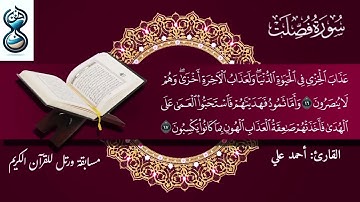 سُورَةُ فُصِّلَتْ
عَذَابَ الْخِزْيِ فِي الْحَيَوٰةِ الدُّنْيَا وَلَعَذَابُ الْأَخِرَةِ أَخْزَىٰ وَهُمْ
لَا يُنصَرُونَ ١٦ وَأَمَّا ثَمُودُ فَهَدَيْنَٰهُمْ فَاسْتَحَبُّوا۟ الْعَمَىٰ عَلَى
الْهُدَىٰ فَأَخَذَتْهُمْ صَٰعِقَةُ الْعَذَابِ الْهُونِ بِمَا كَانُوا۟ يَكْسِبُونَ ١٧
القارئ: أحمد علي
مسابقة ورتل للقرآن الكريم